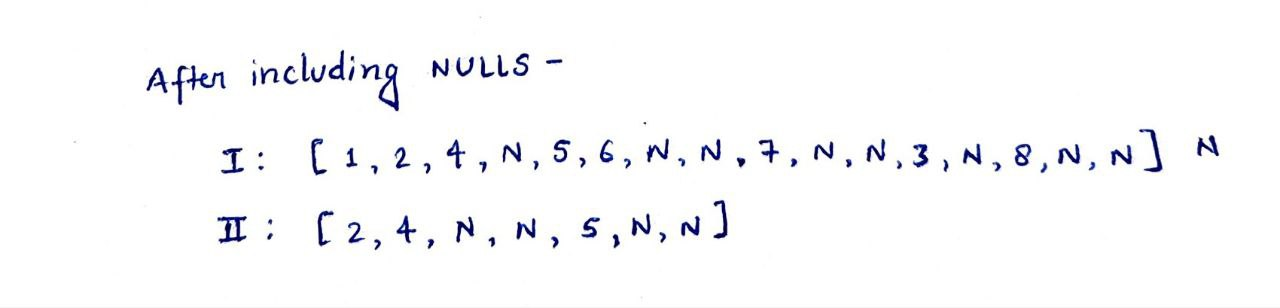 After including NULLS -
I: [1, 2, 4, N, 5, 6, N, N, 7, N, N, 3, N, 8, N, N] N
II: [2, 4, N, N, 5, N, N]